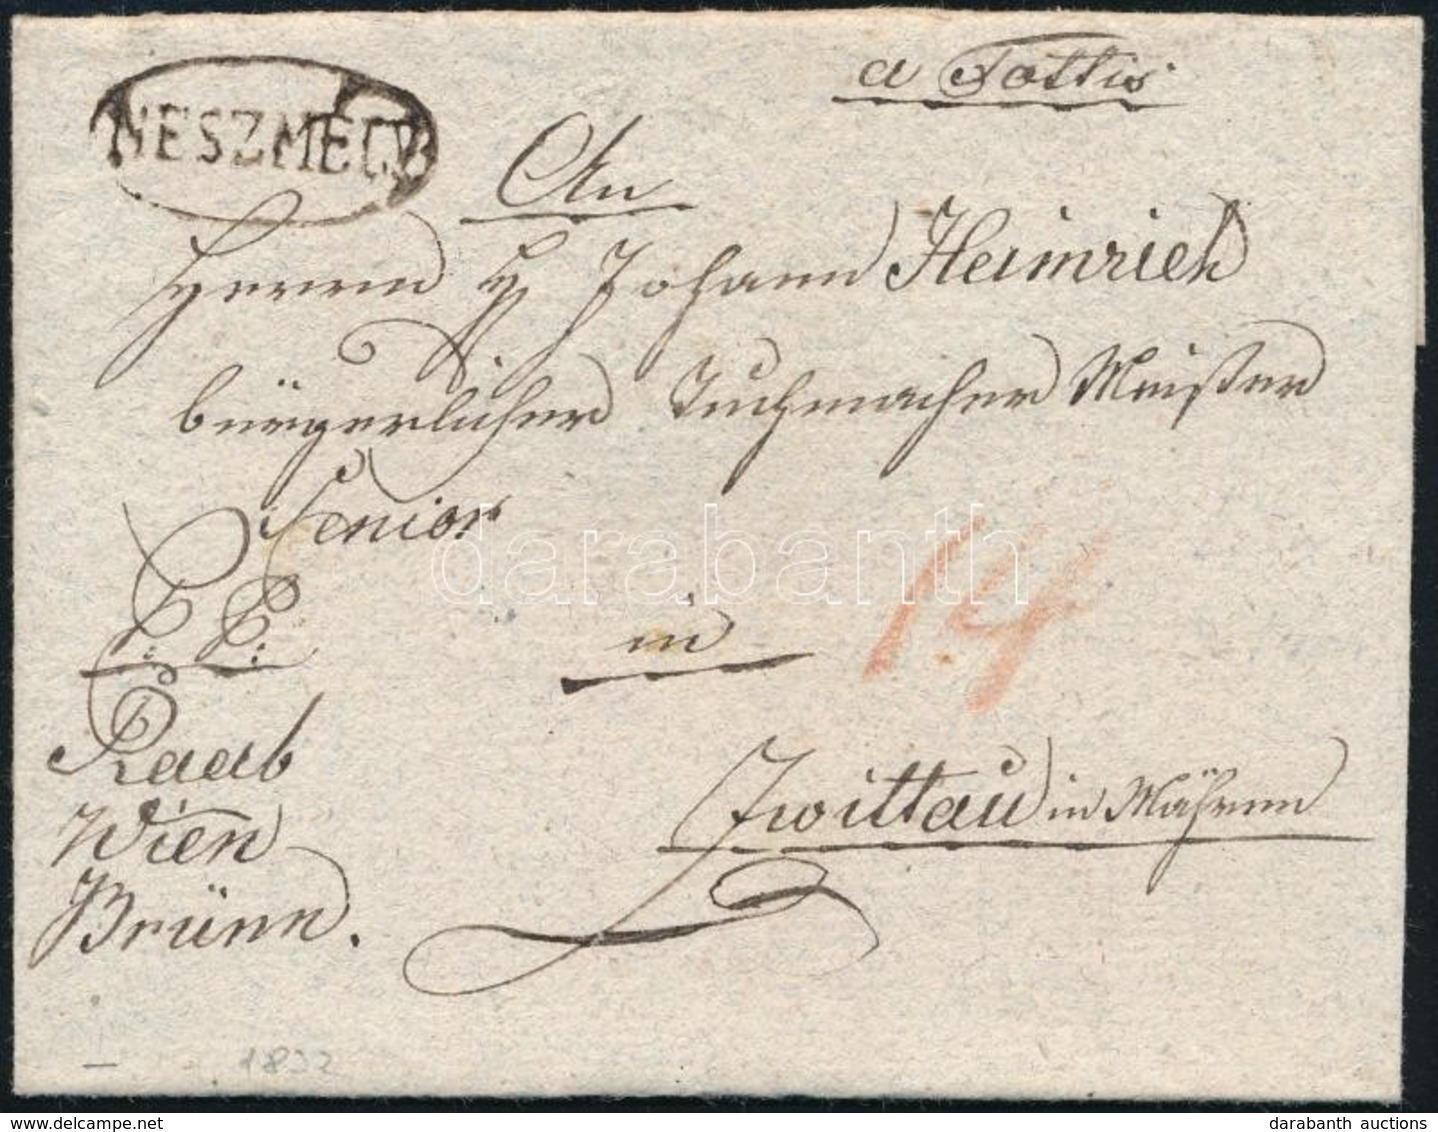 a Tottis
NESZMELY
An
Herrn H Johann Heinrich
bürgerlicher Tuchmacher Meister
Senior
darabanth
14
P: P:
in
Raab
Zwittau in Mähren
Wien
Brünn.
1832
darabanth auctions
www.delcampe.net